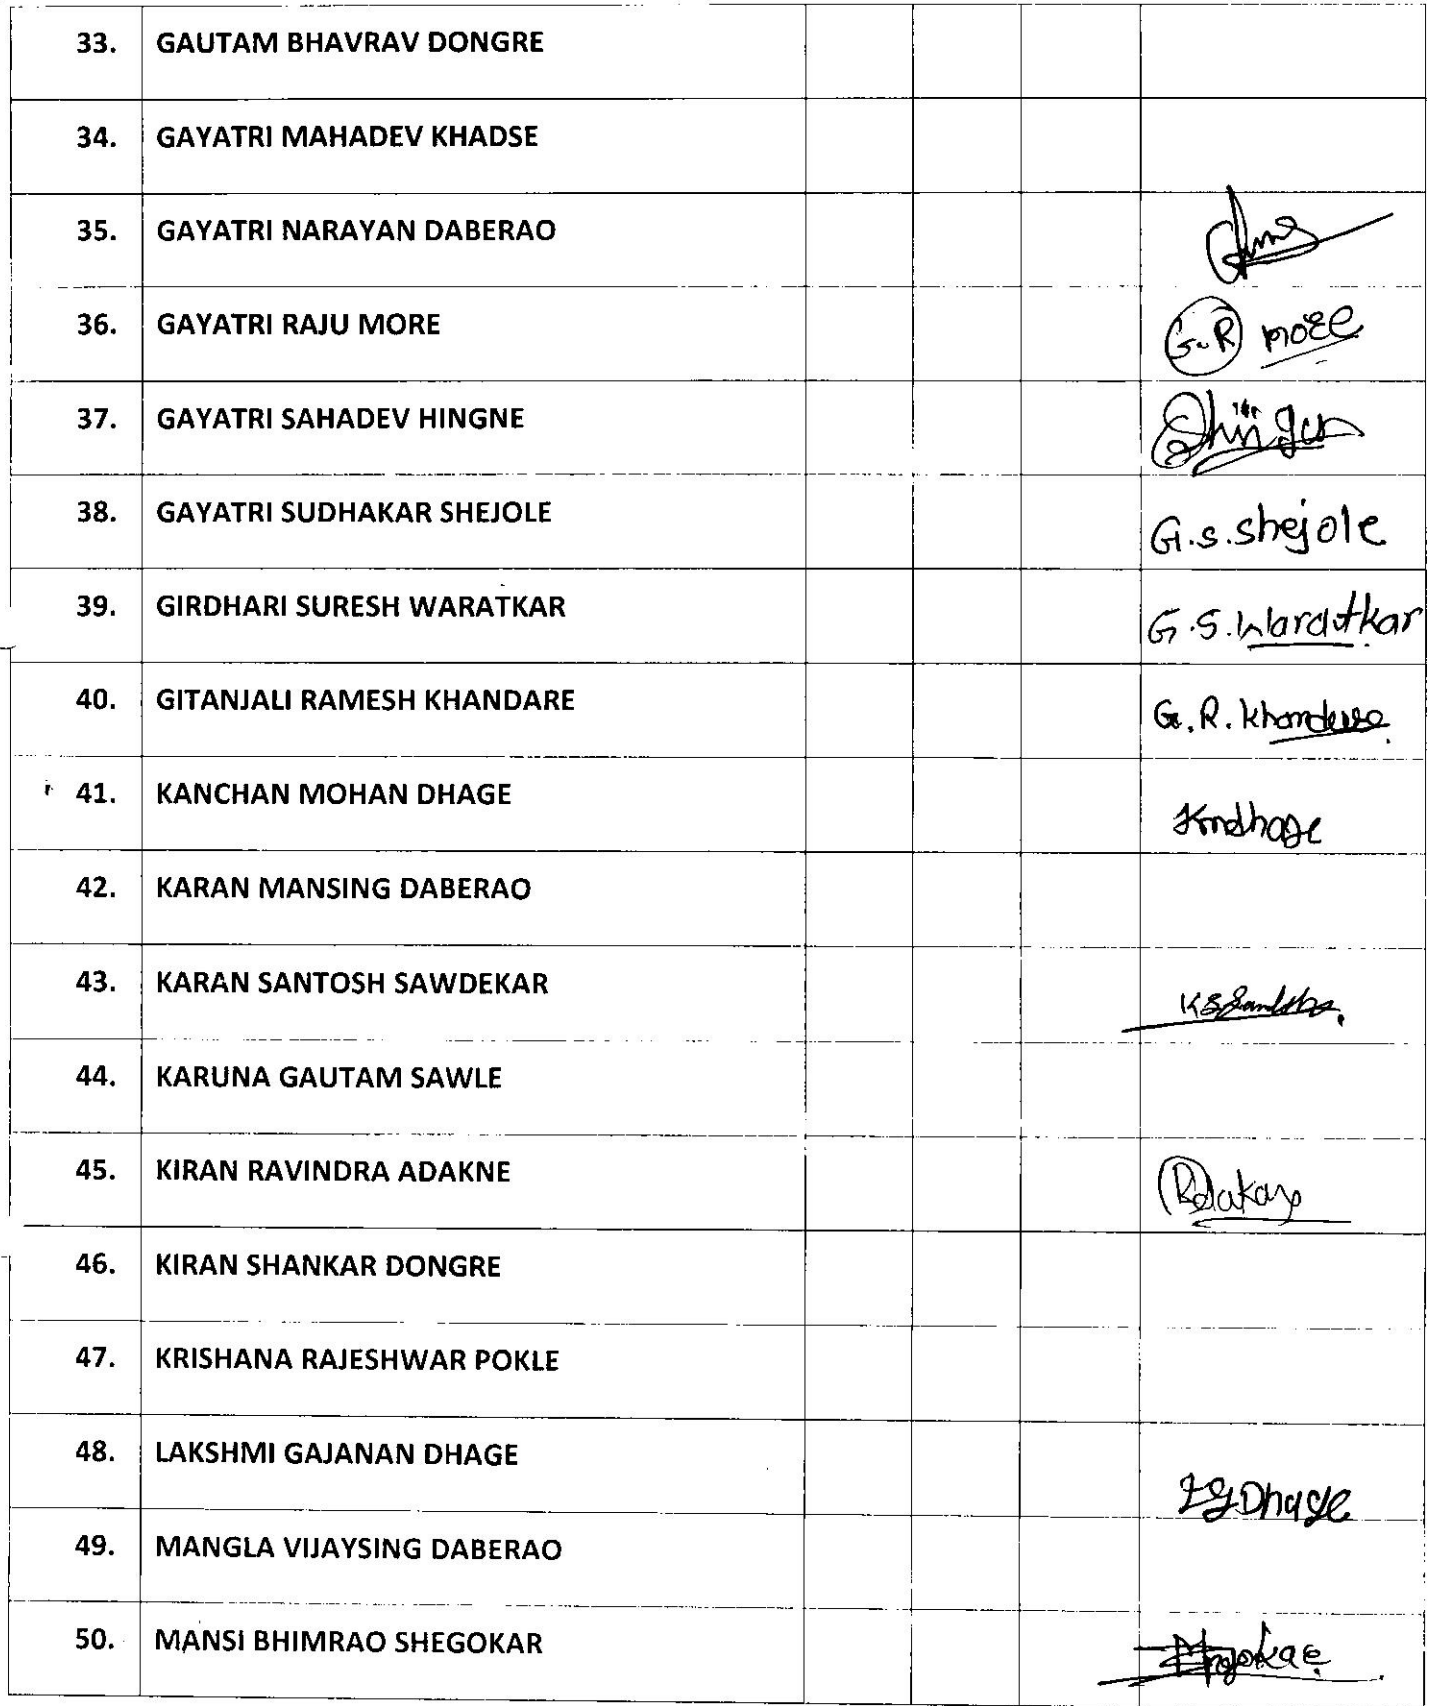 33. GAUTAM BHAVRAV DONGRE
34. GAYATRI MAHADEV KHADSE
35. GAYATRI NARAYAN DABERAO
36. GAYATRI RAJU MORE G.R more
37. GAYATRI SAHADEV HINGNE
38. GAYATRI SUDHAKAR SHEJOLE G.s.shejole
39. GIRDHARI SURESH WARATKAR G.S.Waratkar
40. GITANJALI RAMESH KHANDARE G.R.khandare
41. KANCHAN MOHAN DHAGE Kmdhage
42. KARAN MANSING DABERAO
43. KARAN SANTOSH SAWDEKAR
44. KARUNA GAUTAM SAWLE
45. KIRAN RAVINDRA ADAKNE
46. KIRAN SHANKAR DONGRE
47. KRISHANA RAJESHWAR POKLE
48. LAKSHMI GAJANAN DHAGE LGDhage
49. MANGLA VIJAYSING DABERAO
50. MANSI BHIMRAO SHEGOKAR